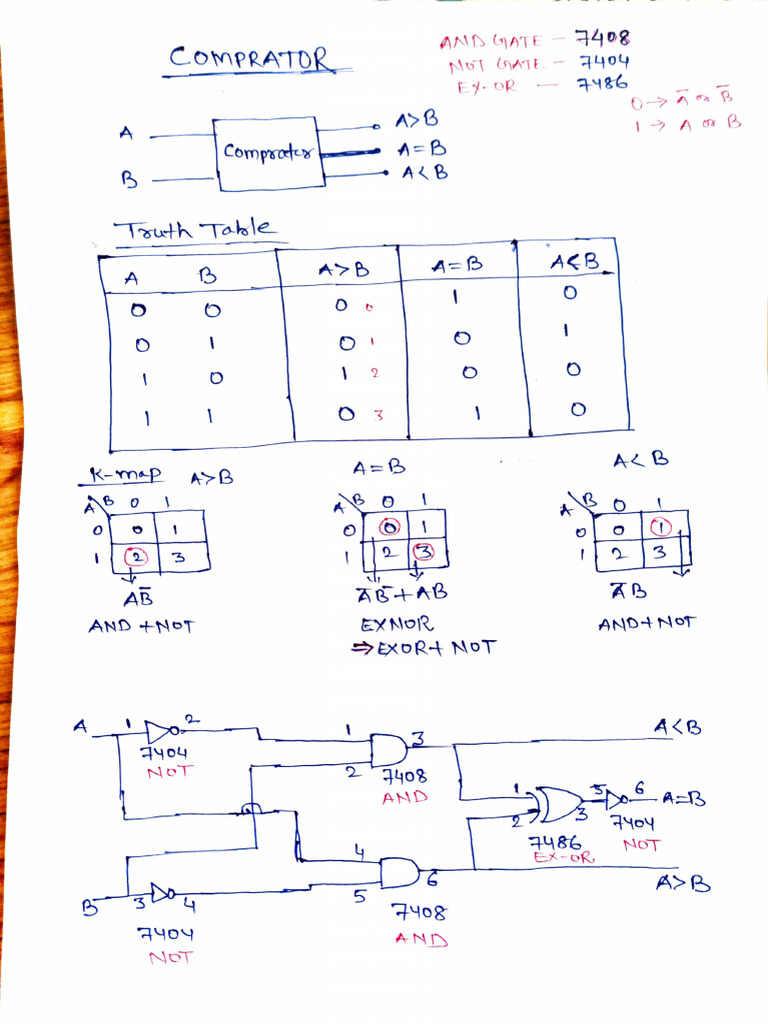 COMPRATOR
AND GATE - 7408
NOT GATE - 7404
EX-OR - 7486
0 → A̅ or B̅
1 → A or B
A
B
Comprator
A>B
A=B
A<B
Truth Table
A B A>B A=B A<B
0 0 0 0 1 0
0 1 0 1 0 1
1 0 1 2 0 0
1 1 0 3 1 0
K-map A>B
A=B
A<B
A B 0 1
0 0 1
1 2 3
AB̅
AND + NOT
A B 0 1
0 0 1
1 2 3
A̅B̅ + AB
EXNOR
⇒ EXOR + NOT
A B 0 1
0 0 1
1 2 3
A̅B
AND + NOT
A 1 2
7404
NOT
1
2
3
7408
AND
A<B
1
2
3
7486
EX-OR
5 6
7404
NOT
A=B
B 3 4
7404
NOT
4
5
6
7408
AND
A>B